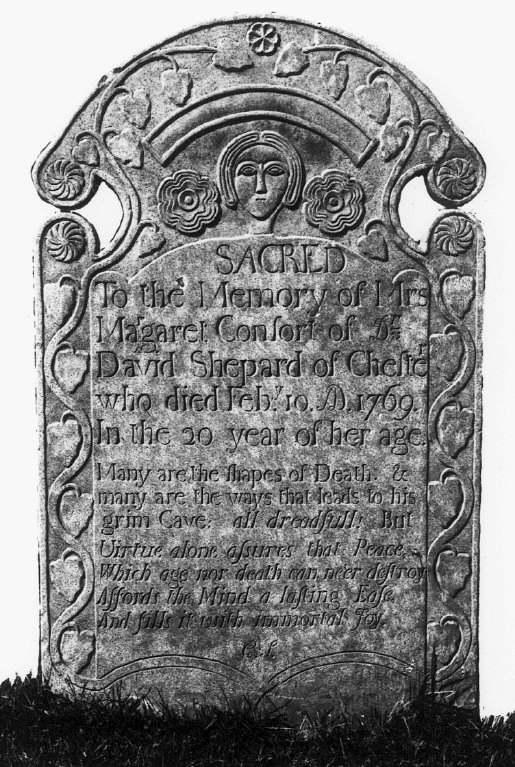 SACRED
To the Memory of Mrs
Margaret Conſort of Dr
David Shepard of Cheſter
who died Feby. 10. AD. 1769.
In the 20 year of her age.
Many are the ſhapes of Death. &
many are the ways that leads to his
grim Cave; all dreadfull: But
Virtue alone aſsures that Peace
Which age nor death can ne'er deſtroy
Affords the Mind a laſting Eaſe
And fills it with immortal Joy.